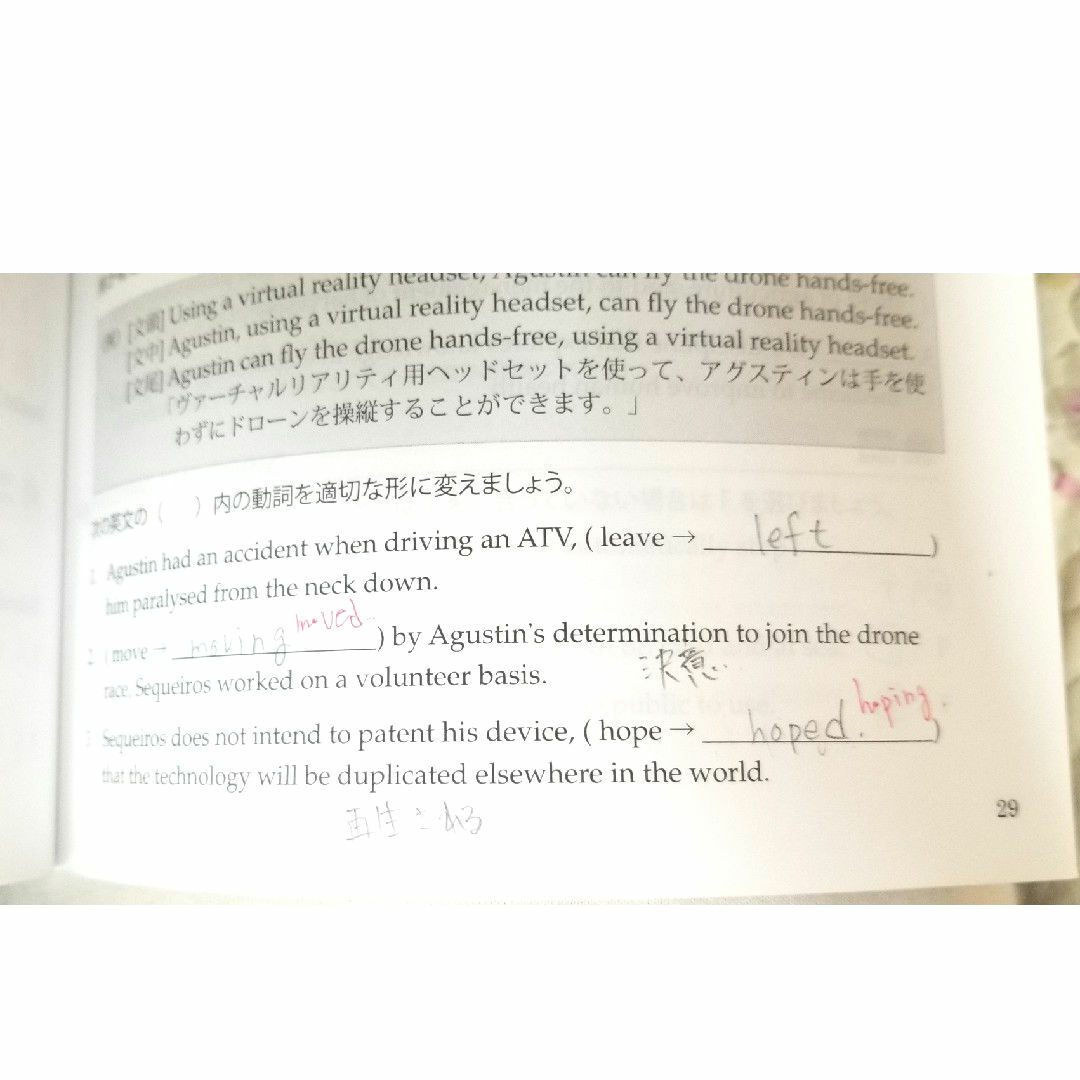 [文頭] Using a virtual reality headset, Agustin can fly the drone hands-free.
[文中] Agustin, using a virtual reality headset, can fly the drone hands-free.
[文尾] Agustin can fly the drone hands-free, using a virtual reality headset.
「ヴァーチャルリアリティ用ヘッドセットを使って、アグスティンは手を使
わずにドローンを操縦することができます。」
次の英文の（　）内の動詞を適切な形に変えましょう。
1. Agustin had an accident when driving an ATV, ( leave → left )
him paralysed from the neck down.
moved
2. ( move → moving ) by Agustin's determination to join the drone
決意
race, Sequeiros worked on a volunteer basis.
hoping
3. Sequeiros does not intend to patent his device, ( hope → hoped. )
that the technology will be duplicated elsewhere in the world.
29